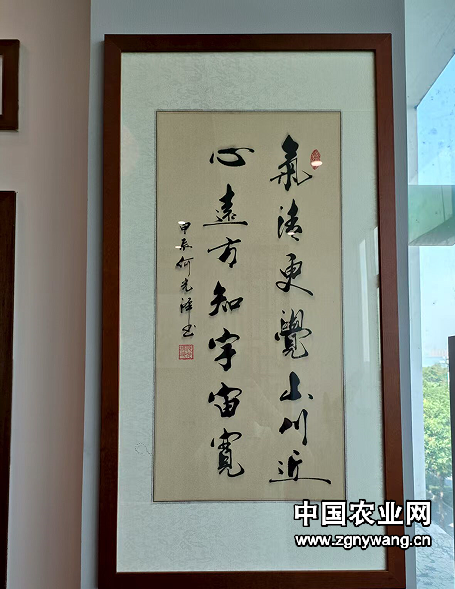 氣清更覺山川近
心遠方知宇宙寬
甲辰何光泽书
中国农业网
www.zgnywang.cn